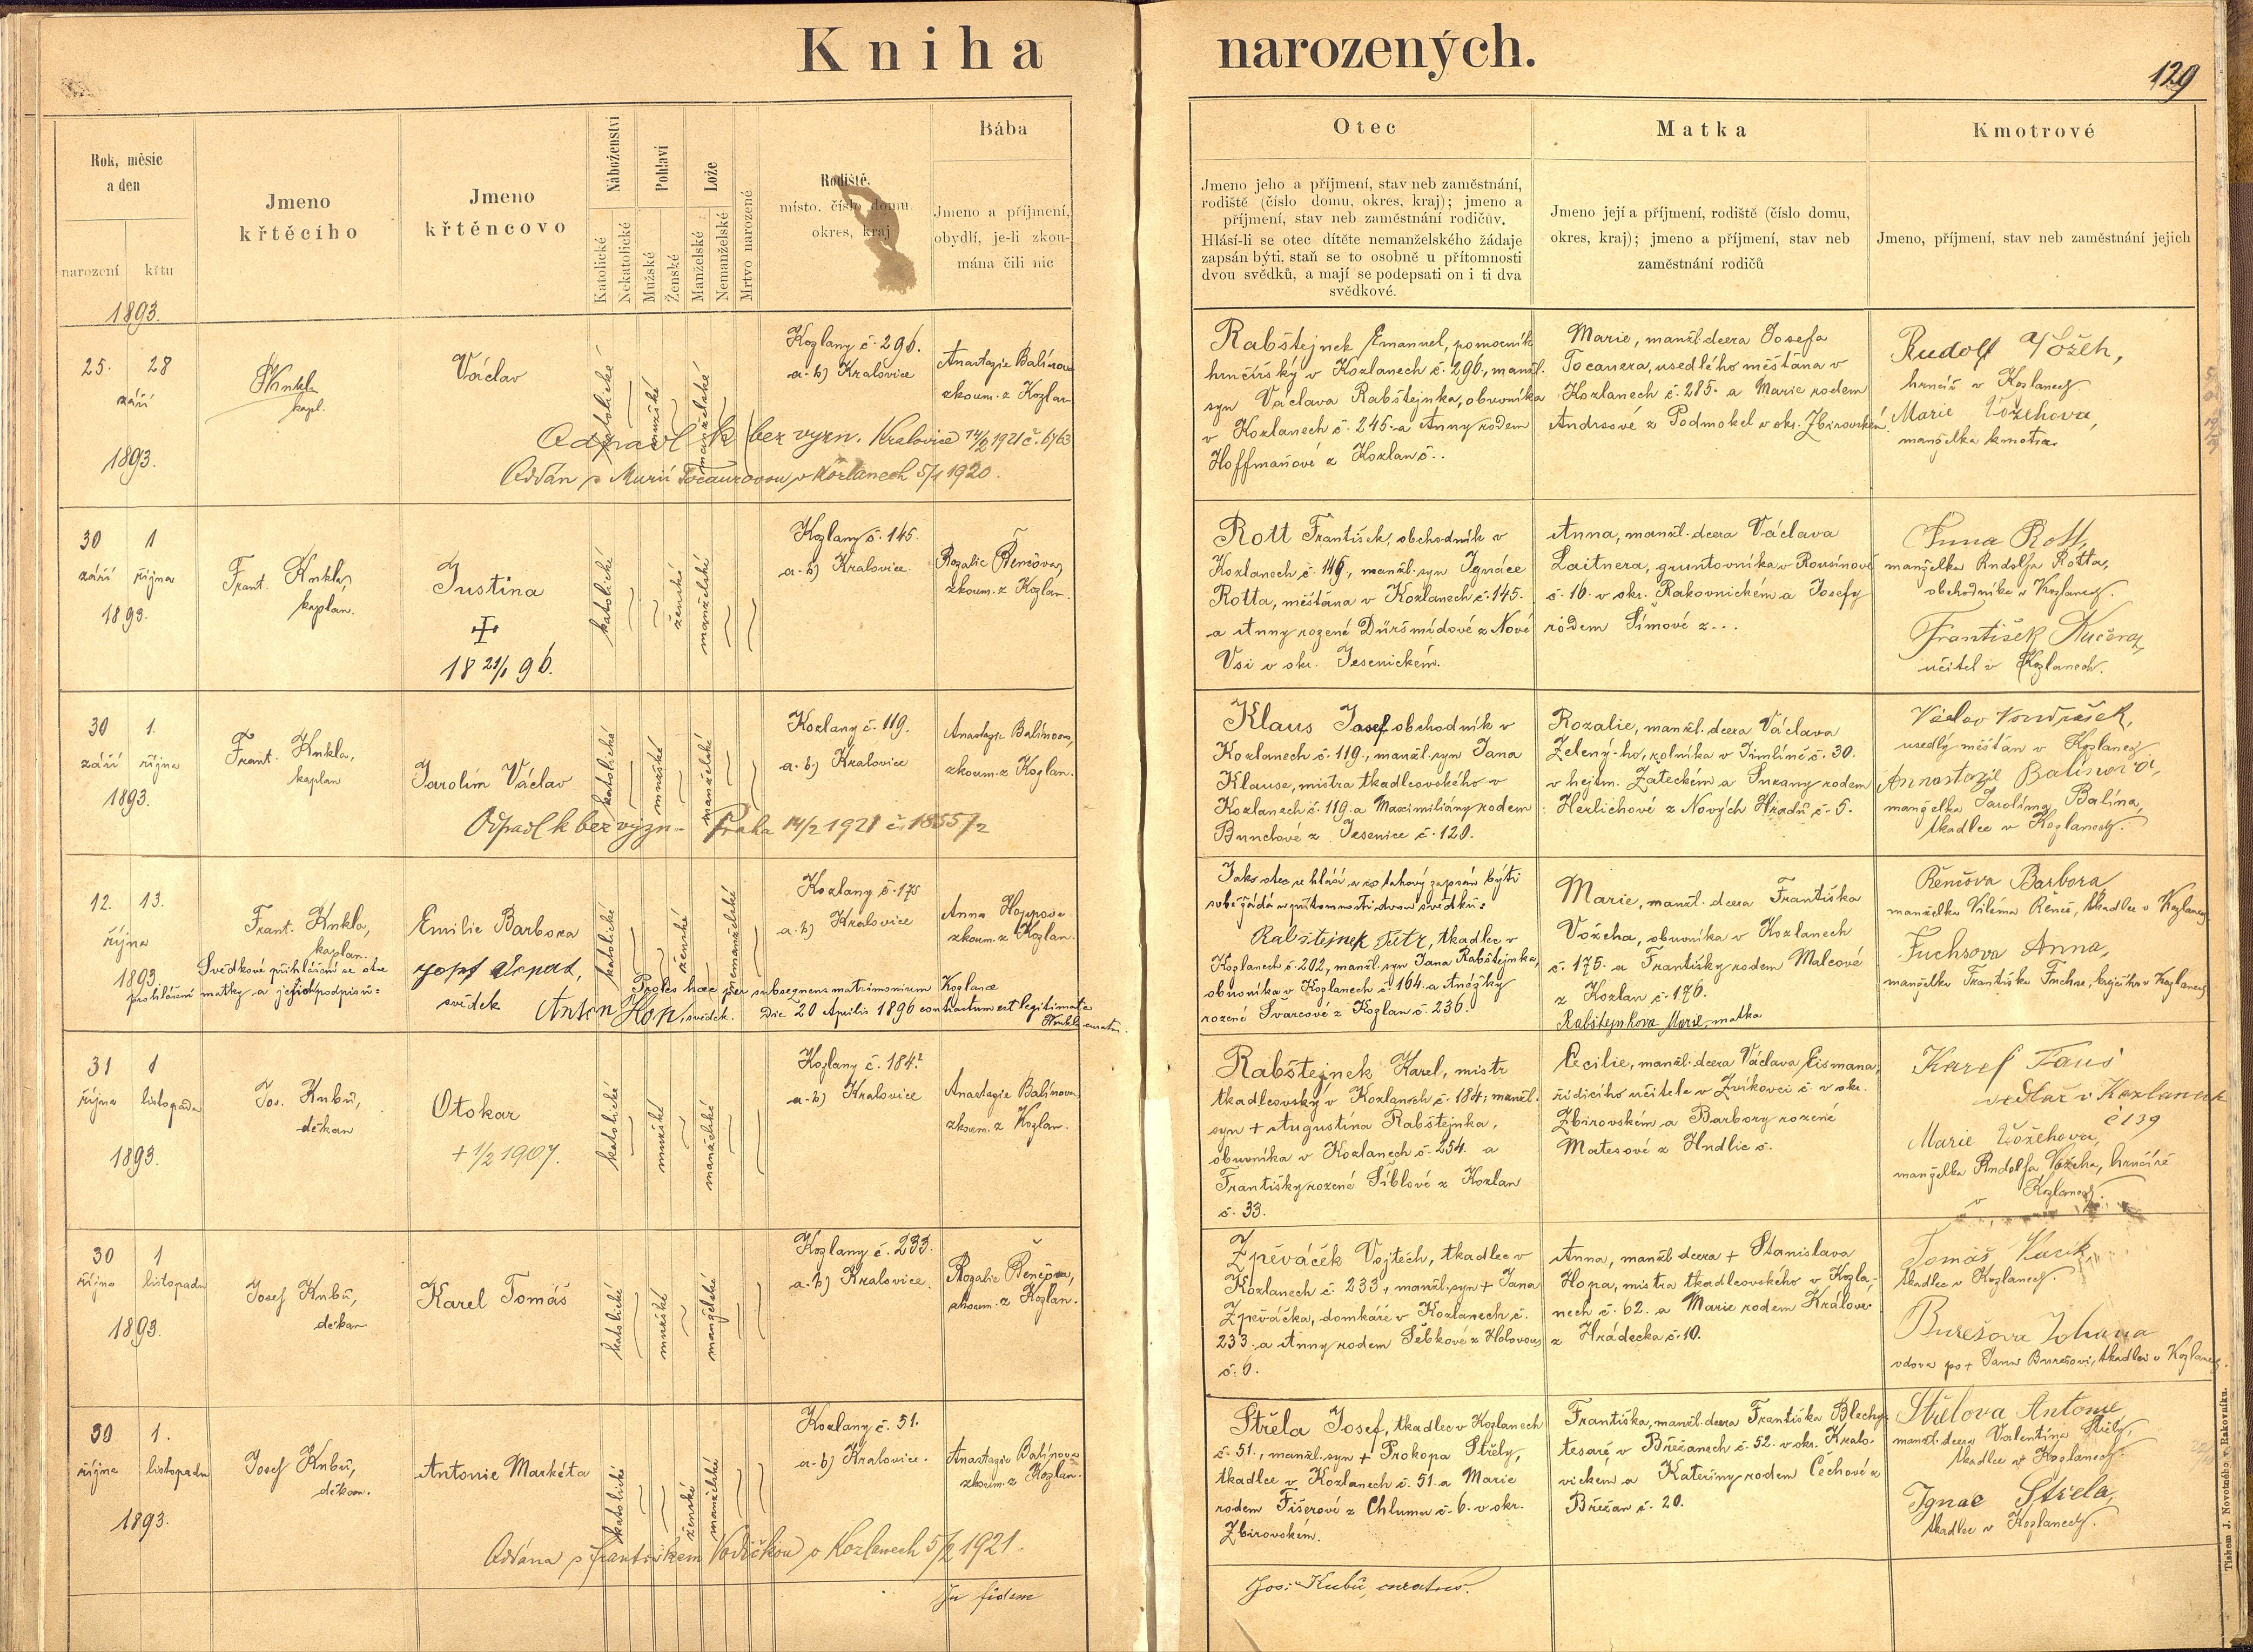 Kniha narozených.
129
Rok, měsíc
a den
narození
křtu
Jmeno
křtěcího
Jmeno
křtěncovo
Náboženství
Katolické
Nekatolické
Pohlaví
Mužské
Ženské
Lože
Manželské
Nemanželské
Mrtvo narozené
Rodiště,
místo, číslo domu,
okres, kraj
Bába
Jmeno a příjmení,
obydlí, je-li zkou-
mána čili nic
Otec
Jmeno jeho a příjmení, stav neb zaměstnání,
rodiště (číslo domu, okres, kraj); jmeno a
příjmení, stav neb zaměstnání rodičův.
Hlásí-li se otec dítěte nemanželského žádaje
zapsán býti, staň se to osobně u přítomnosti
dvou svědků, a mají se podepsati on i ti dva
svědkové.
Matka
Jmeno její a příjmení, rodiště (číslo domu,
okres, kraj); jmeno a příjmení, stav neb
zaměstnání rodičů
Kmotrové
Jmeno, příjmení, stav neb zaměstnání jejich
1893.
25. 28
září
1893.
Knkla
kapl.
Václav
katolické
mužské
manželské
Kozlany č. 296.
a. b) Kralovice
Anastazie Balínova
zkoum. z Kozlan
Odpadl k bez vyzn. Kralovice 14/2 1921 č. 6763
Oddán s Marií Tocauerovou v Kozlanech 5/1 1920.
Rabštejnek Emanuel, pomocník
hrnčířský v Kozlanech č. 296., manžl.
syn Václava Rabštejnka, obuvníka
v Kozlanech č. 245. a Anny rodem
Hoffmanové z Kozlan č..
Marie, manžl. dcera Josefa
Tocauera, usedlého měšťana v
Kozlanech č. 285. a Marie rodem
Andrsové z Podmokel v okr. Zbirovském.
Rudolf Vožeh,
hrnčíř v Kozlanech
Marie Vožehova,
manželka kmotra.
30 1
září října
1893.
Frant. Knkla,
kaplan.
Justina
18 21/1 96.
katolické
ženské
manželské
Kozlany č. 145.
a. b) Kralovice.
Rozalie Řenčova,
zkoum. z Kozlan.
Rott František, obchodník v
Kozlanech č. 145, manžl. syn Ignáce
Rotta, měšťana v Kozlanech č. 145.
a Anny rozené Düršmídové z Nové
Vsi v okr. Jesenickém.
Anna, manžl. dcera Václava
Laitnera, gruntovníka v Rousínově
č. 16. v okr. Rakovnickém a Josefy
rodem Šímové z...
Anna Rott,
manželka Rudolfa Rotta,
obchodníka v Kozlanech.
František Kučera,
učitel v Kozlanech.
30 1.
září října
1893.
Frant. Knkla,
kaplan
Jarolím Václav
katolické
mužské
manželské
Kozlany č. 119.
a. b) Kralovice
Anastazie Balínova,
zkoum. z Kozlan.
Odpadl k bez vyzn. Praha 14/2 1921 č. 1855/2
Klaus Josef obchodník v
Kozlanech č. 119., manžl. syn Jana
Klause, mistra tkadlcovského v
Kozlanech č. 119. a Maximiliány rodem
Bunchové z Jesenice č. 120.
Rozalie, manžl. dcera Václava
Zelený-ho, rolníka v Jimlíně č. 30.
v hejtm. Žateckém a Suzany rodem
Herlichové z Nových Hradů č. 5.
Václav Vondrášek,
usedlý měšťan v Kozlanech
Annastazie Balínova,
manželka Jarolíma Balína,
tkadlce v Kozlanech.
12. 13.
října
1893.
Frant. Knkla,
kaplan.
Emilie Barbora
katolické
ženské
nemanželské
Kozlany č. 175
a. b) Kralovice
Anna Hoppova
zkoum. z Kozlan.
Svědkové přihlášení se otce
prohlášení matky a jejich podpisů:
svědek
Anton Hop, svědek.
Proles haec per subsequens matrimonium Kozlanæ
Die 20 Aprilis 1896 contractum est legitimata
Jako otec se hlásí, a co takový zapsán býti
sobě žádá v přítomnosti dvou svědků:
Rabštejnek Petr, tkadlec v
Kozlanech č. 202, manžl. syn Jana Rabštejnka,
obuvníka v Kozlanech č. 164. a Anežky
rozené Švarcové z Kozlan č. 236.
Marie, manžl. dcera Františka
Vožeha, obuvníka v Kozlanech
č. 175. a Františky rodem Malcové
z Kozlan č. 176.
Rabštejnkova Marie, matka
Řenčova Barbora
manželka Viléma Řenče, tkadlce v Kozlanech
Fuchsova Anna,
manželka Františka Fuchse, krejčího v Kozlanech
31 1
října listopadu
1893.
Jos. Kubů,
děkan
Otokar
+ 1/2 1907.
katolické
mužské
manželské
Kozlany č. 184.
a. b) Kralovice
Anastazie Balínova
zkoum. z Kozlan.
Rabštejnek Karel, mistr
tkadlcovský v Kozlanech č. 184, manžl.
syn + Augustína Rabštejnka,
obuvníka v Kozlanech č. 254. a
Františky rozené Šíblové z Kozlan
č. 33.
Cecilie, manžl. dcera Václava Eismana,
řídícího učitele v Zvíkovci č. v okr.
Zbirovském a Barbory rozené
Matesové z Hudlic č.
Karel Faus
sedlář v Kozlanech
č 139
Marie Vožehova,
manželka Rudolfa Vožeha, hrnčíře
v Kozlanech.
30 1
října listopadu
1893.
Josef Kubů,
děkan
Karel Tomáš
katolické
mužské
manželské
Kozlany č. 233.
a. b) Kralovice.
Rozalie Řenčova,
zkoum. z Kozlan.
Zpěváček Vojtěch, tkadlec v
Kozlanech č. 233, manžl. syn + Jana
Zpěváčka, domkáře v Kozlanech č.
233. a Anny rodem Šebkové z Holovous
č. 6.
Anna, manžl. dcera + Stanislava
Hopa, mistra tkadlcovského v Kozla-
nech č. 62. a Marie rodem Králové
z Hrádecka č. 10.
Tomáš Kacík,
tkadlec v Kozlanech.
Burešova Johana
vdova po + Janu Burešovi, tkadlci v Kozlanech.
30 1.
října listopadu
1893.
Josef Kubů,
děkan.
Antonie Markéta
katolické
ženské
manželské
Kozlany č. 51.
a. b) Kralovice.
Anastazie Balínova
zkoum. z Kozlan.
Oddána s Františkem Vodičkou v Kozlanech 5/2 1921.
Střela Josef, tkadlec v Kozlanech
č. 51., manžl. syn + Prokopa Střely,
tkadlce v Kozlanech č. 51. a Marie
rodem Fišerové z Chlumu č. 6. v okr.
Zbirovském.
Františka, manžl. dcera Františka Blechy,
tesaře v Břežanech č. 52. v okr. Kralo-
vickém a Kateřiny rodem Čechové z
Břežan č. 20.
Střelova Antonie
manžl. dcera Valentina Střely,
tkadlce v Kozlanech
Ignac Střela,
tkadlec v Kozlanech.
In fidem
Jos. Kubů, curatus.
Tiskem J. Novotného v Rakovníku.